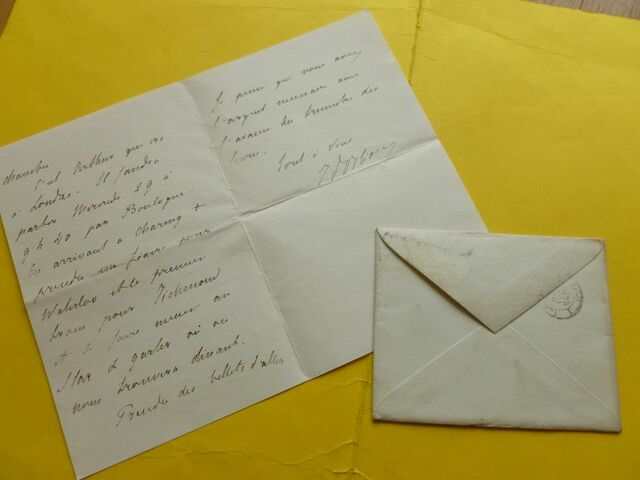 chambre.
C'est Arthur qui ira
à Londres - Il faudra
partir Mercredi 29 à
9 h 40 par Boulogne.
En arrivant à Charing +
prendre un fiacre pour
Waterloo et le premier
train pour Richmond
et se faire mener au
Star & garter où on
nous trouvera dinant.
Prendre des billets d'aller
Je pense que vous avez
l'argent nécessaire avec
l'avance du trimestre des
Tout à vous